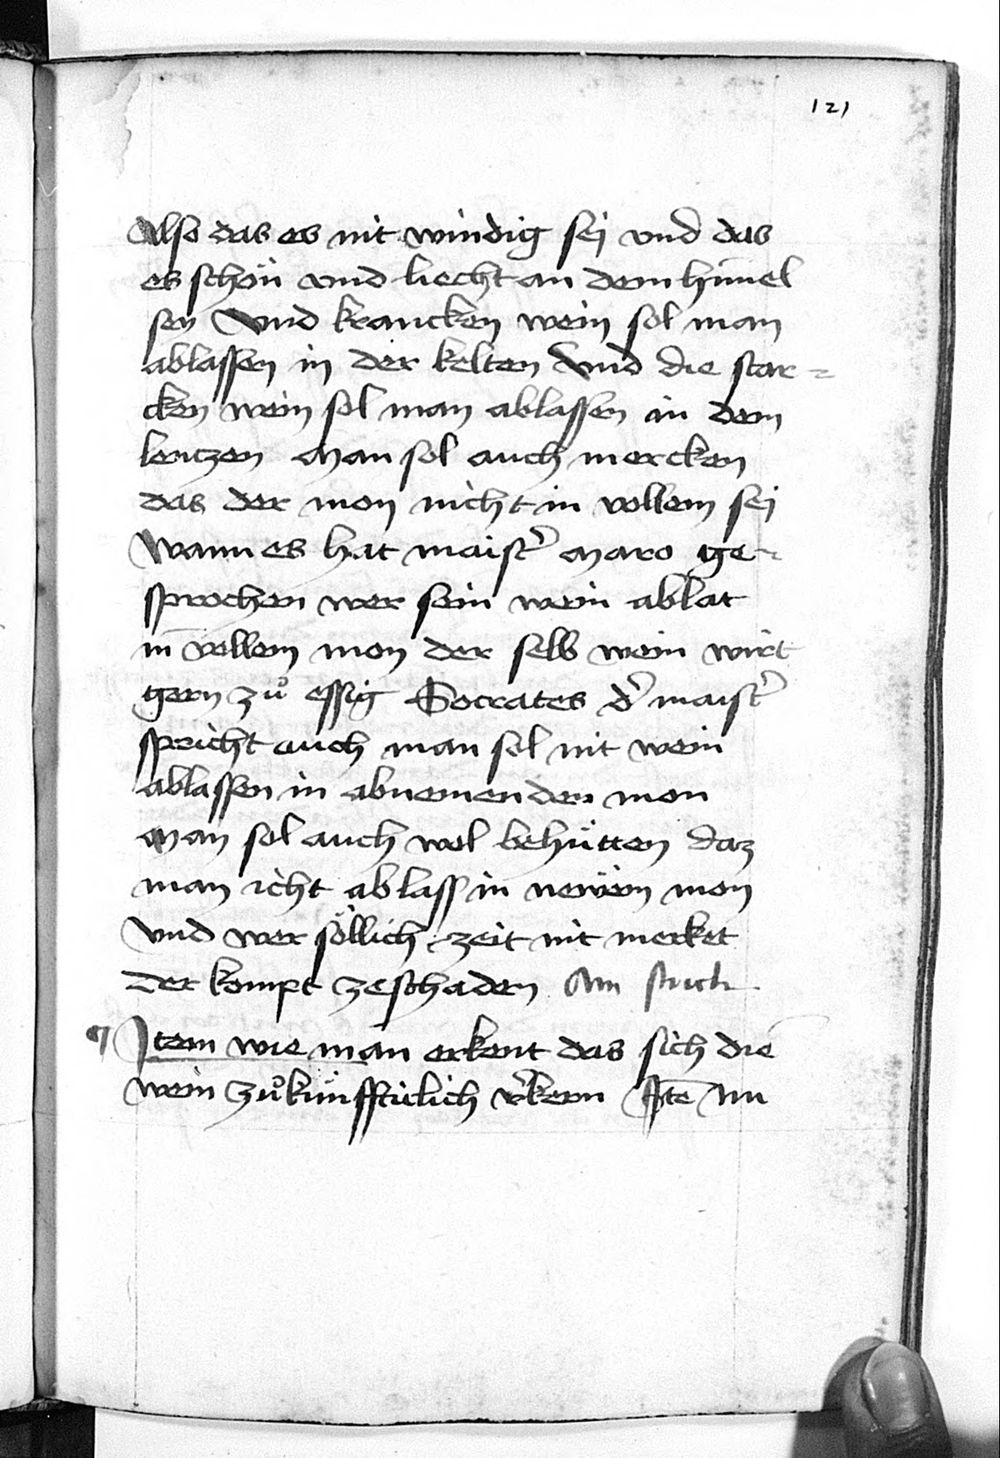 121
Also das es nit windig sej vnd das
es schön vnd liecht an dem himel
sey Vnd krancken wein sol man
ablassen in der kelten Vnd die star-
cken wein sol man ablassen in dem
lentzen Man sol auch mercken
das der mon nicht in vollem sej
Wann es hat maist' maro ge-
sprochen wer sein wein ablat
in vollem mon der selb wein wirt
gern zuͦ essig Socrates d' maist'
spricht auch man sol nit wein
ablassen in abnemenden mon
Man sol auch wol behütten daz
man icht ablass in newem mon
Vnd wer söllich zeit nit merket
Der kompt ze schaden Ain stuck
Item wie man erkent das sich die
wein zuͦkünffticlich v'kern Itē nu